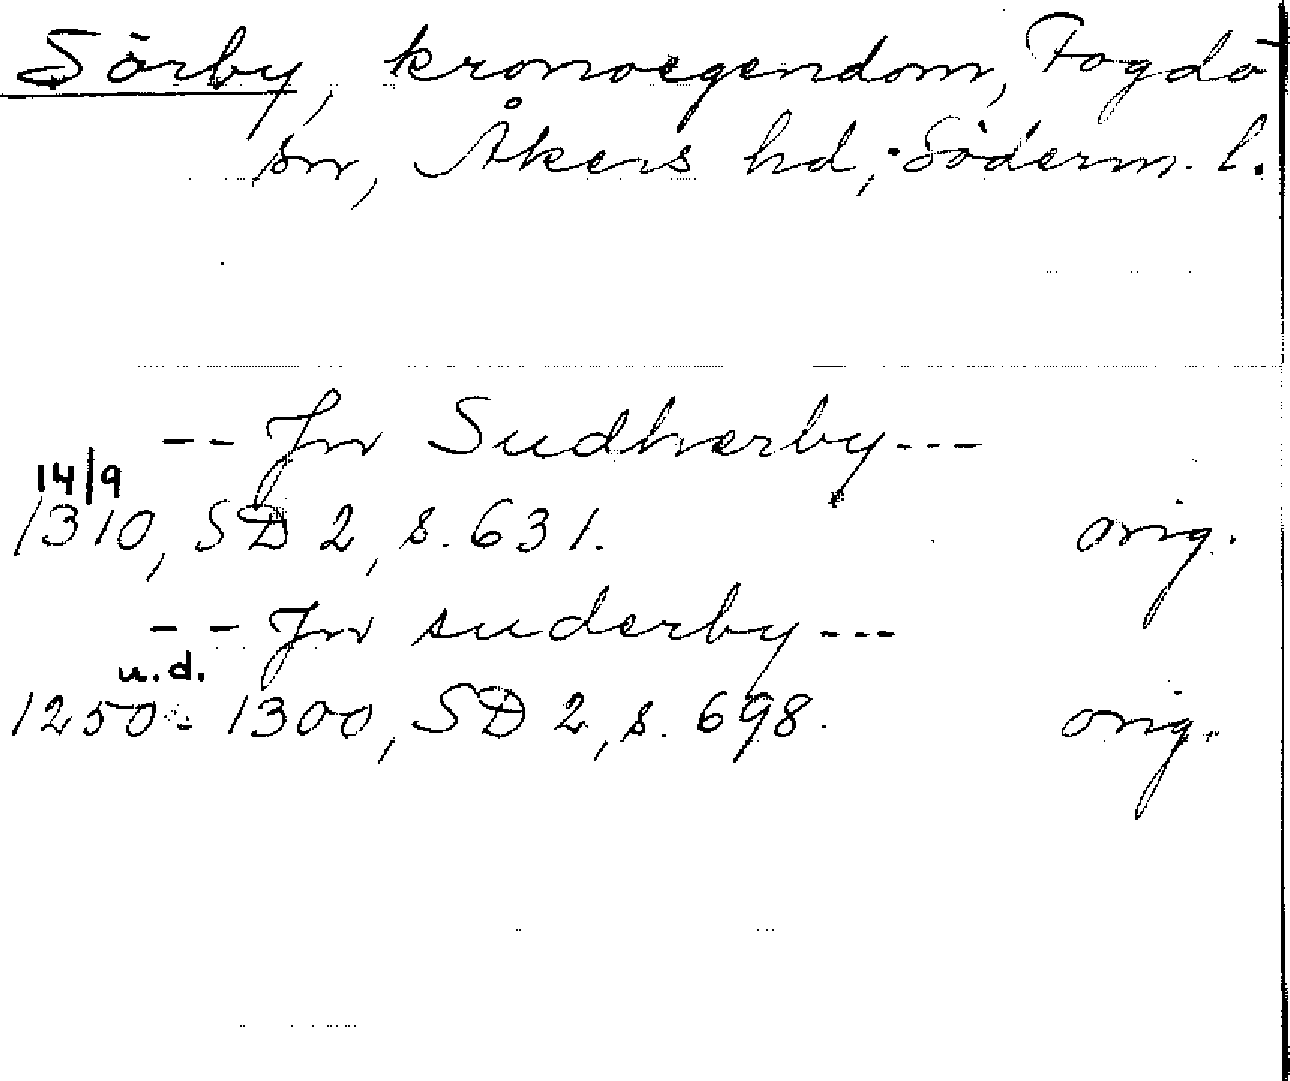 Sörby, kronoegendom, Fogdö
sn, Åkers hd, Söderm. l.
-- Jn Sudherby ---
14/9
1310, SD 2, s. 631. orig.
-- Jn suderby ---
u.d.
1250-1300, SD 2, s. 698. orig.